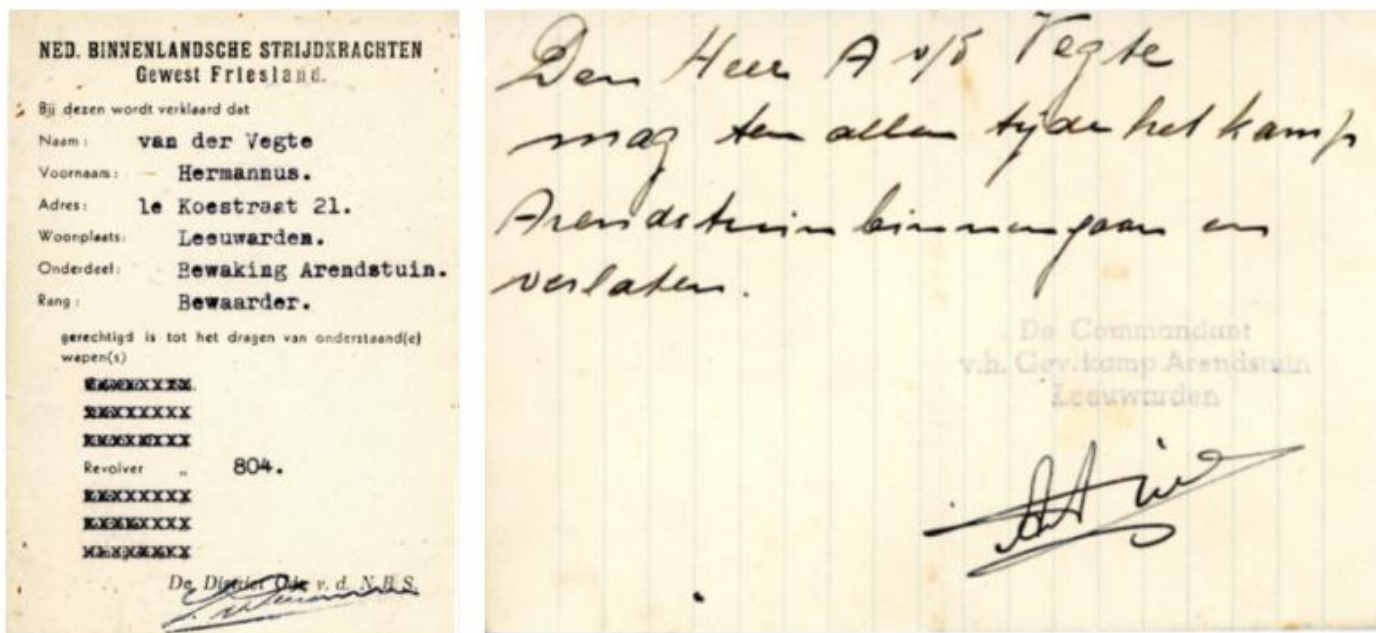 NED. BINNENLANDSCHE STRIJDKRACHTEN
Gewest Friesland.
Bij dezen wordt verklaard dat
Naam: van der Vegte
Voornaam: Hermannus.
Adres: 1e Koestraat 21.
Woonplaats: Leeuwarden.
Onderdeel: Bewaking Arendstuin.
Rang: Bewaarder.
gerechtigd is tot het dragen van onderstaand(e)
wapen(s)
Revolver „ 804.
De District Cdt. v. d. N.B.S.
Den Heer A v/d Vegte
mag ten allen tijde het kamp
Arendstuin binnengaan en
verlaten.
De Commandant
v.h. Gev.kamp Arendstuin
Leeuwarden